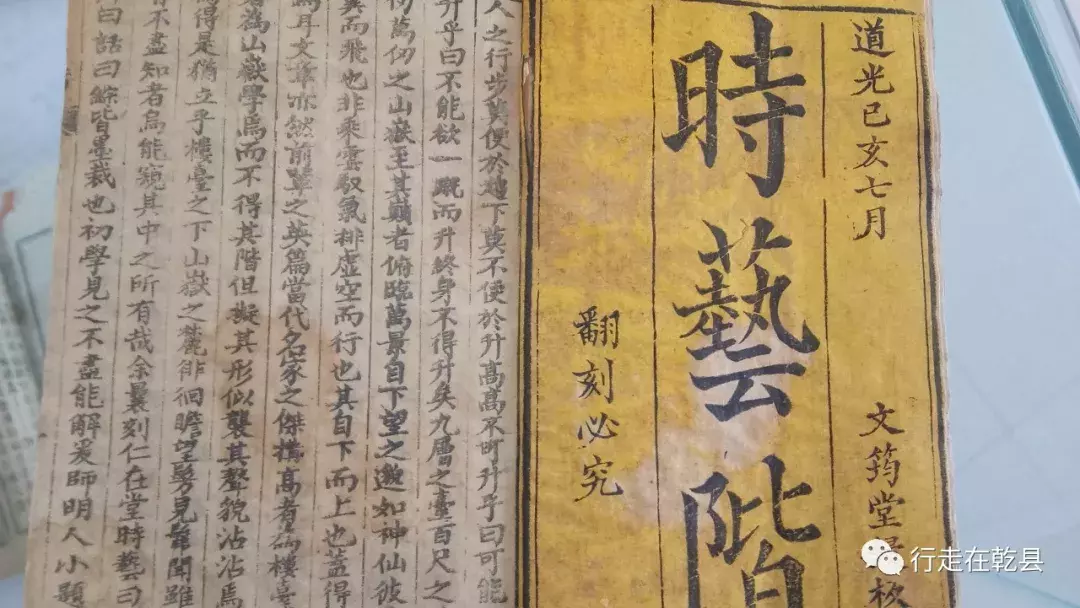 道光己亥七月
文筠堂
時藝階
翻刻必究
人之行步莫便於趋下莫不便於升高高不可升乎曰可能
升乎曰不能欲一蹴而升終身不得升矣九層之臺百尺之
仞萬仞之山嶽至其巅者俯臨萬景自下望之邈如神仙彼
翼而飛也非乘雲馭氣排虛空而行也其自下而上也蓋得
為耳文章亦然前輩之英篇當代名家之傑構高者為樓臺
為山嶽學焉而不得其階但擬其形似襲其聲貌沾沾焉
得是猶立乎樓臺之下山嶽之麓徘徊瞻望髣見髴聞雖
不盡知者烏能窺其中之所有哉余曩刻仁在堂時藝曰
曰話曰綜皆墨裁也初學見之不盡能解爰師明人小題
行走在乾县